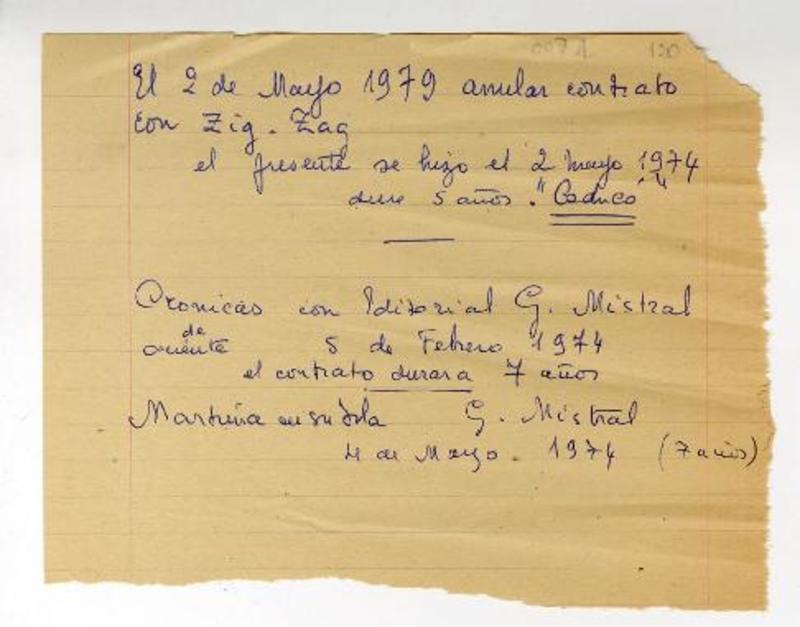 007A 120
El 2 de Mayo 1979 anular contrato
con Zig. Zag
el presente se hizo el 2 mayo 1974
dura 5 años. "Caduco"
Cronicas con Editorial G. Mistral
de
oriente 5 de Febrero 1974
el contrato durara 7 años
Martina en su Isla G. Mistral
4 de Mayo. 1974 (7 años)